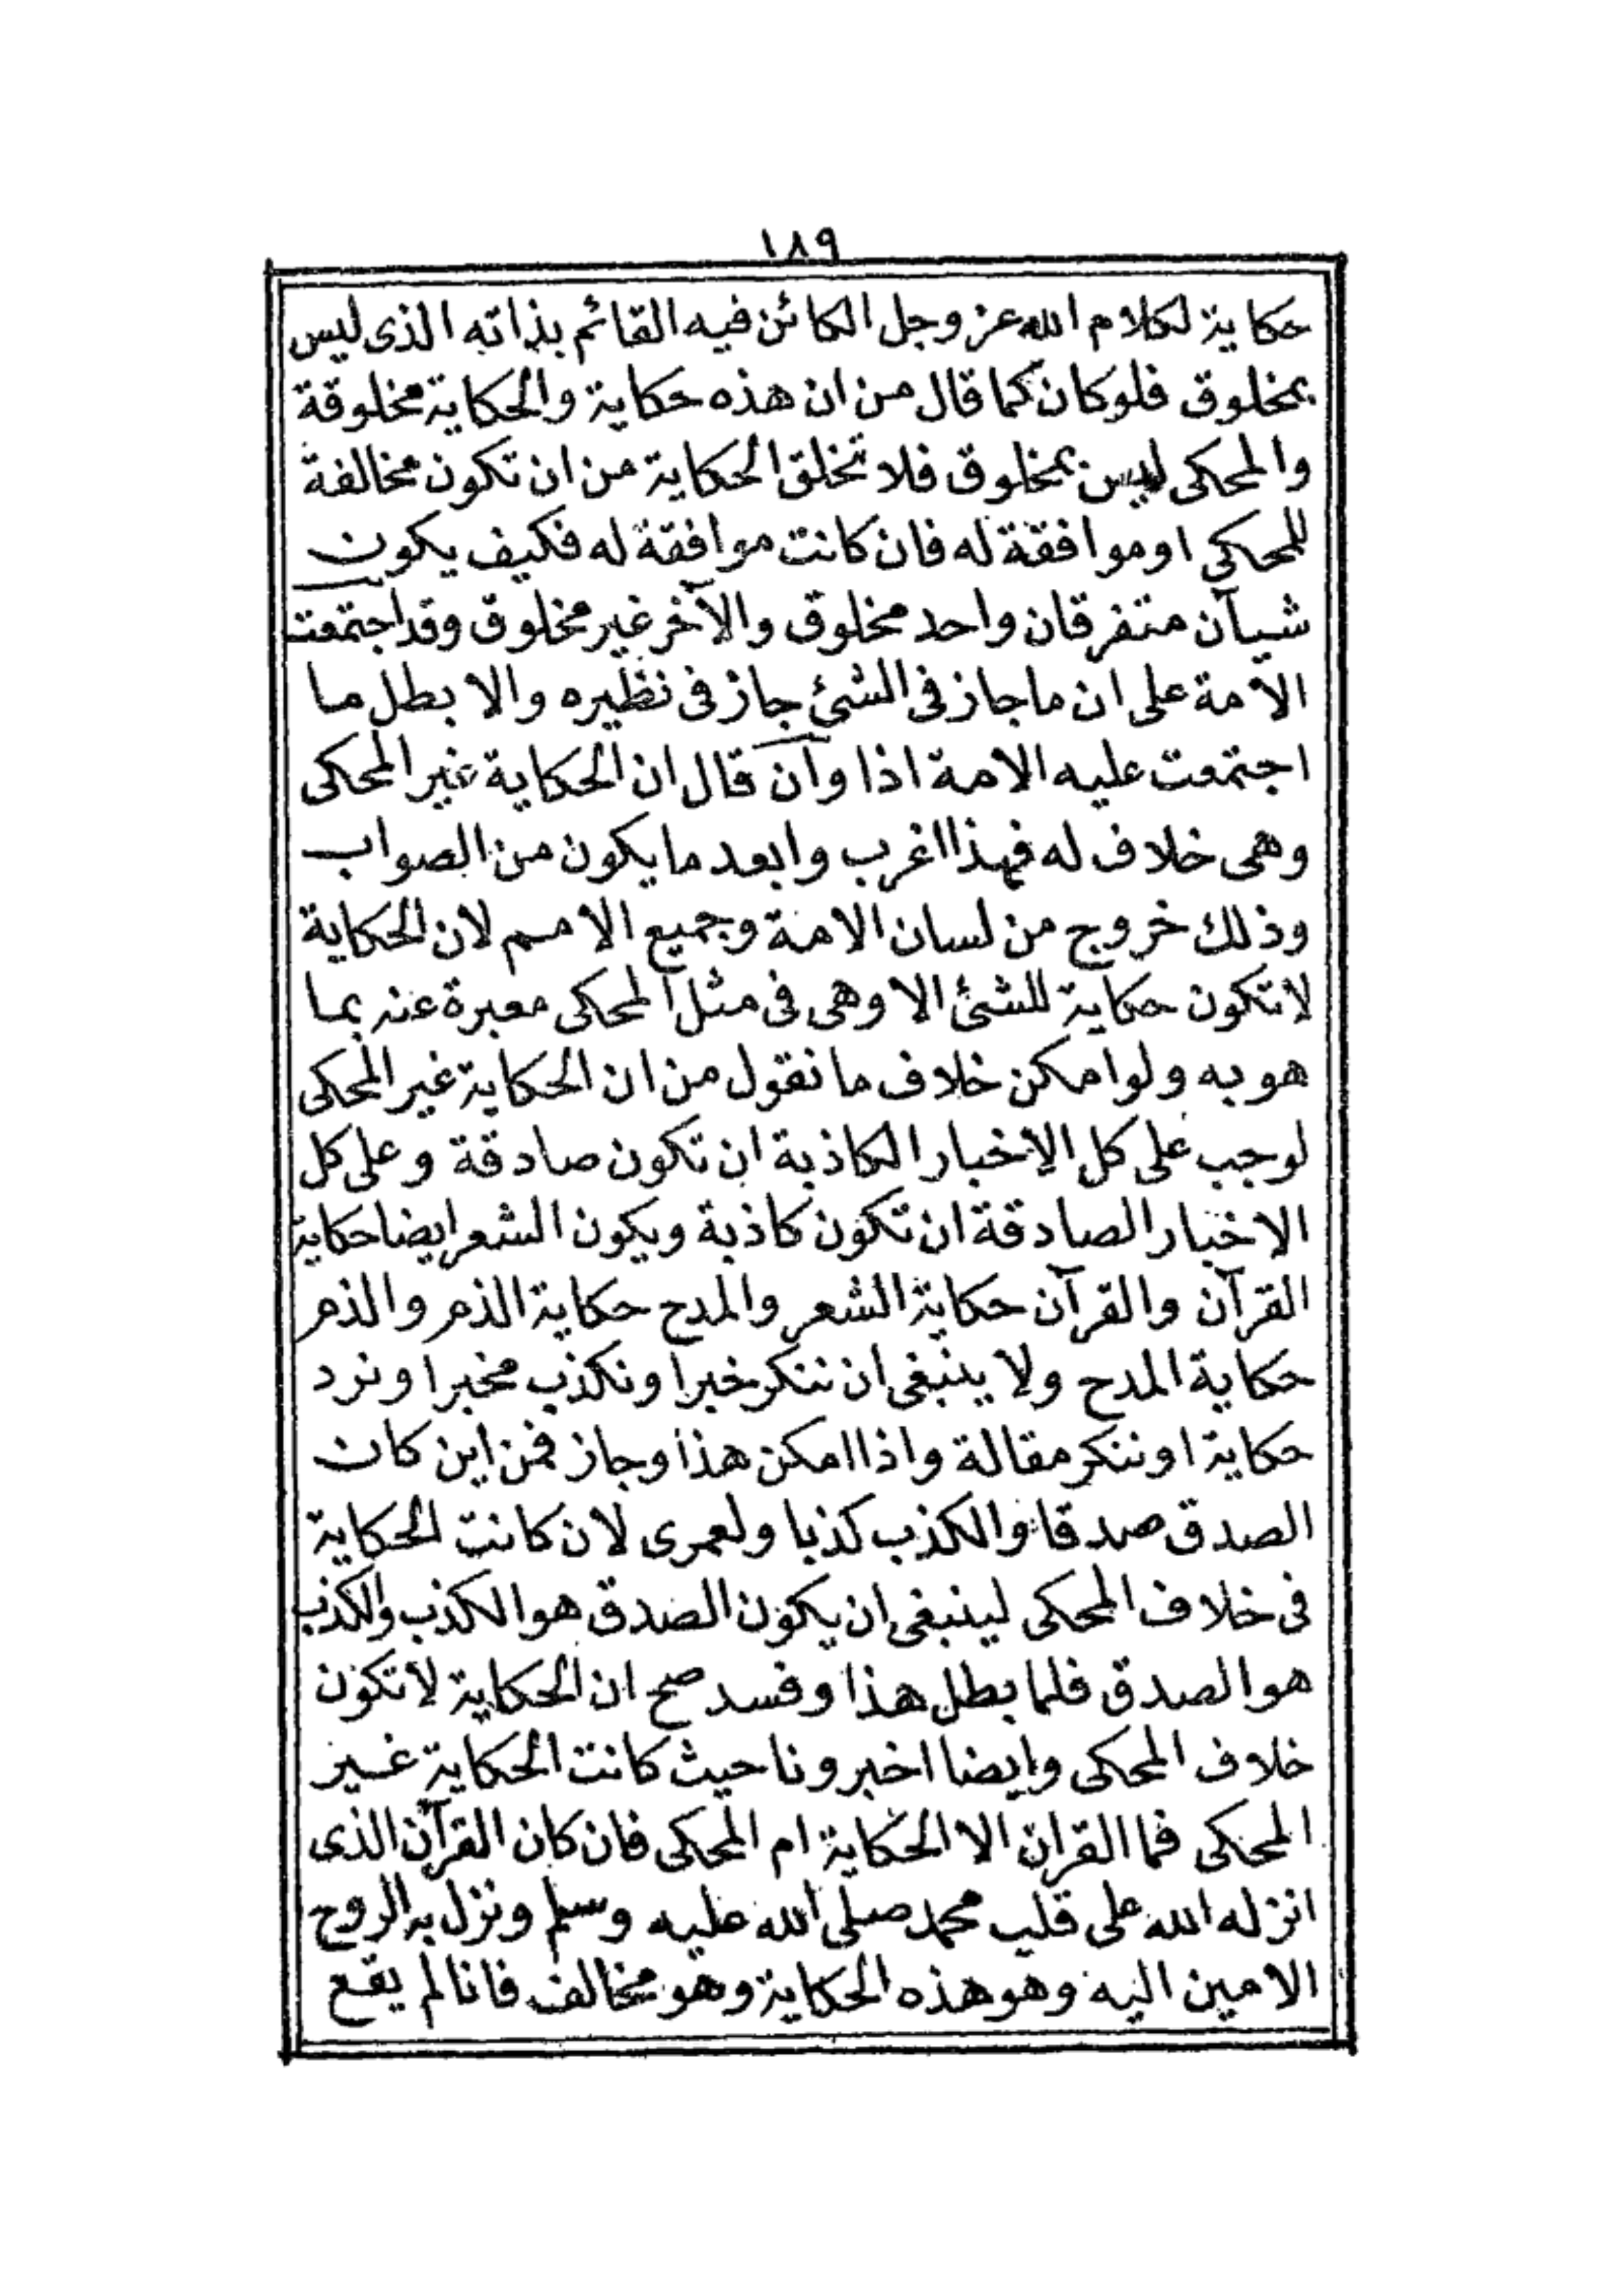 ١٨٩
حكاية لكلام الله عز وجل الكائن فيه القائم بذاته الذى ليس
بمخلوق فلو كان كما قال من ان هذه حكاية والحكاية مخلوقة
والمحكى ليس بمخلوق فلا تخلق الحكاية من ان تكون مخالفة
للمحكى او موافقة له فان كانت موافقة له فكيف يكون
شيآن متفرقان واحد مخلوق والآخر غير مخلوق وقد اجتمعت
الامة على ان ما جاز فى الشئ جاز فى نظيره والا بطل ما
اجتمعت عليه الامة اذا وان قال ان الحكاية غير المحكى
وهى خلاف له فهذا اغرب وابعد ما يكون من الصواب
وذلك خروج من لسان الامة وجميع الامم لان الحكاية
لا تكون حكاية للشئ الا وهى فى مثل المحكى معبرة عنه بما
هو به ولو امكن خلاف ما نقول من ان الحكاية غير المحكى
لوجب على كل الاخبار الكاذبة ان تكون صادقة وعلى كل
الاخبار الصادقة ان تكون كاذبة ويكون الشعر ايضا حكاية
القرآن والقرآن حكاية الشعر والمدح حكاية الذم والذم
حكاية المدح ولا ينبغى ان ننكر خبرا ونكذب مخبرا ونرد
حكاية او ننكر مقالة واذا امكن هذا وجاز فمن اين كان
الصدق صدقا والكذب كذبا ولعمرى لان كانت الحكاية
فى خلاف المحكى لينبغى ان يكون الصدق هو الكذب والكذب
هو الصدق فلما بطل هذا وفسد صح ان الحكاية لا تكون
خلاف المحكى وايضا اخبرونا حيث كانت الحكاية غير
المحكى فما القران الا الحكاية ام المحكى فان كان القرآن الذى
انزله الله على قلب محمد صلى الله عليه وسلم ونزل به الروح
الامين اليه وهو هذه الحكاية وهو مخالف فانا لم يقع